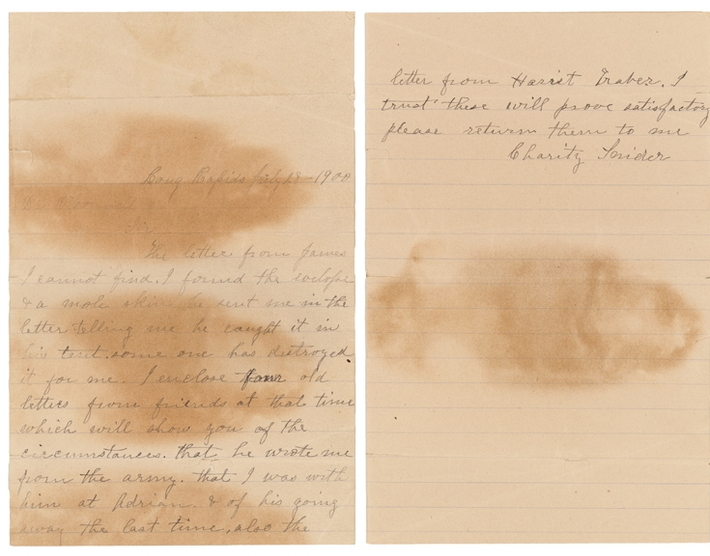 Long Rapids July 28 - 1900
Sir
The letter from James
I cannot find. I found the invlope
& a mole skin he sent me in the
letter telling me he caught it in
his tent. some one has destroyed
it for me. I enclose four old
letters from friends at that time
which will show you of the
circumstances. that he wrote me
from the army. that I was with
him at Adrian & of his going
away the last time, also the
letter from Harriet Traber. I
trust these will prove satisfactory
please return them to me
Charity Snider